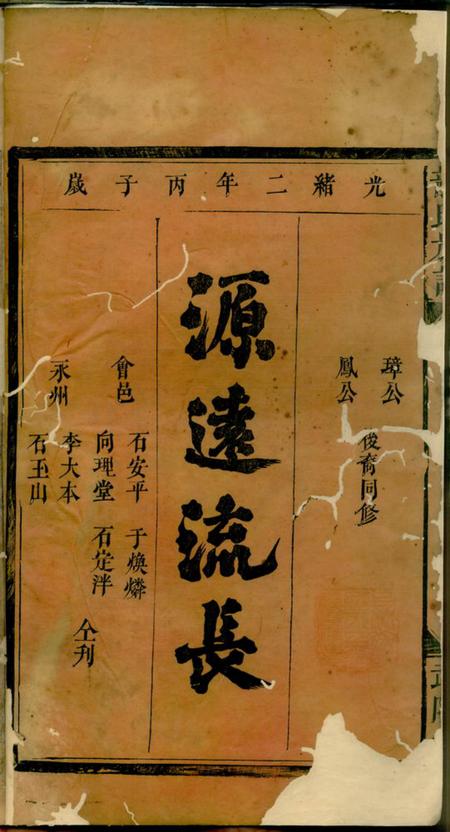 光緒二年丙子歲
璋公
鳳公
後裔同修
源遠流長
會邑
石安平 于煥燐
向理堂 石定泮
永州
李大本
石玉山
仝刋